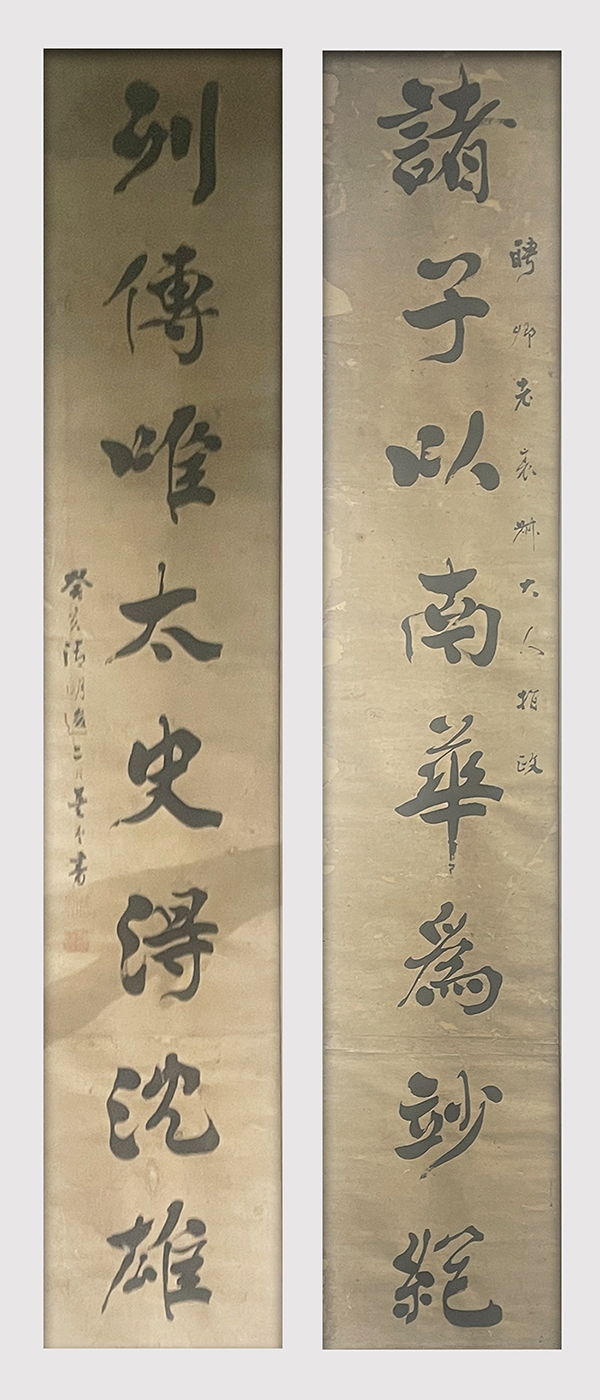 聘卿老大人指政
諸子以南華爲竗絕
列傳唯太史得沈雄
癸亥清明後二日書